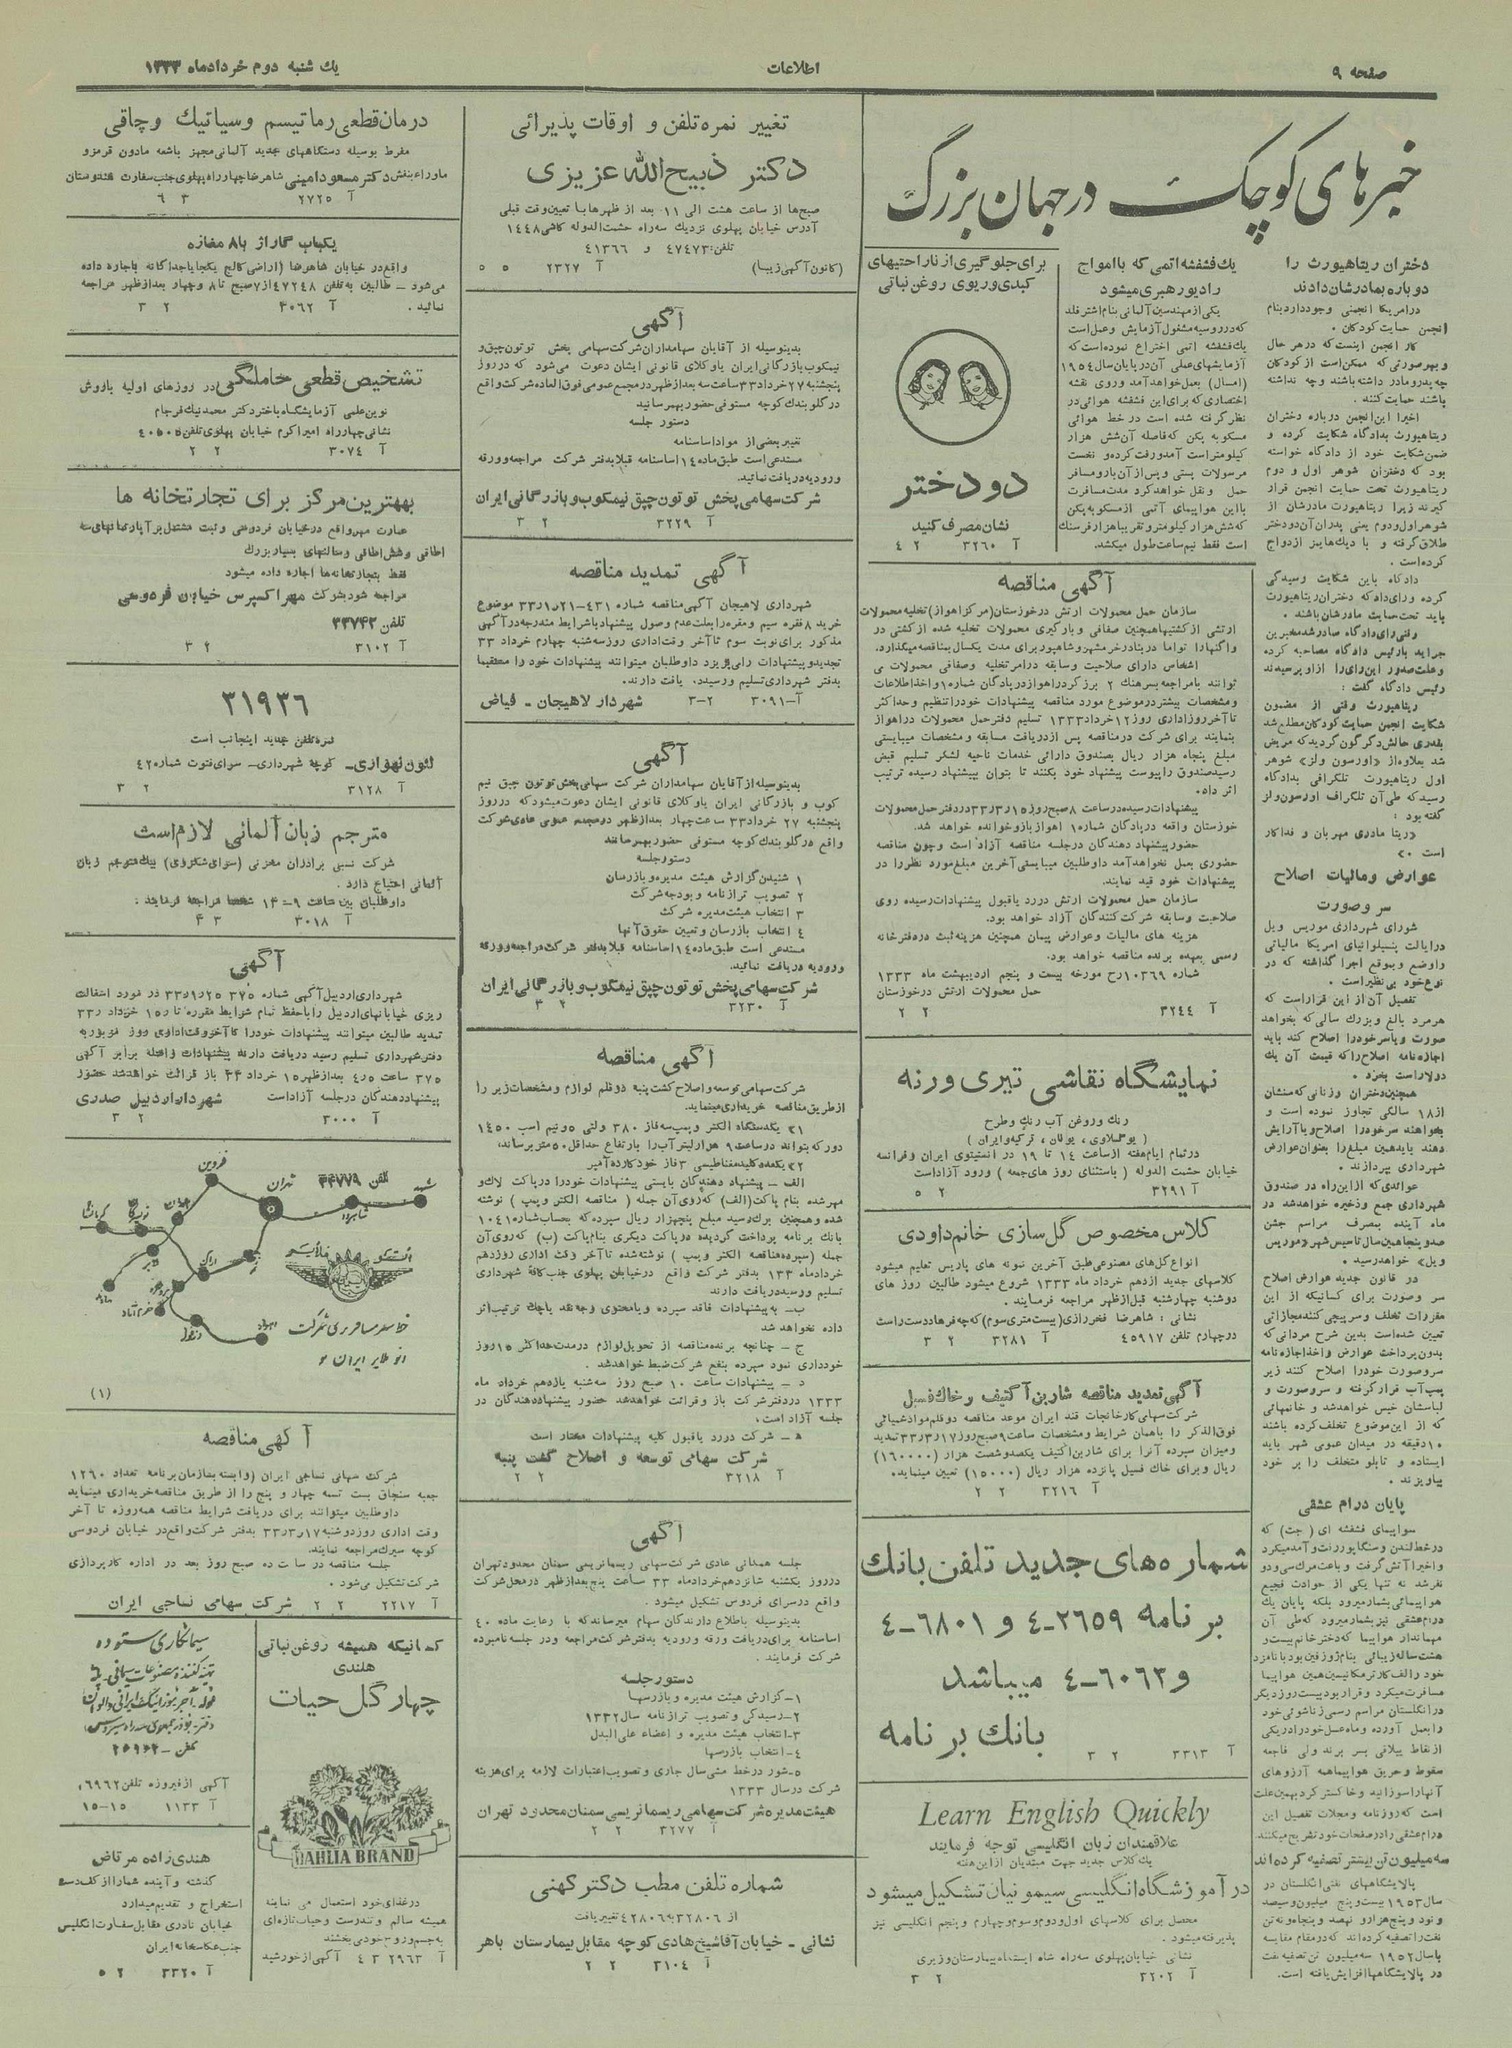 صفحه ۹
اطلاعات
یك شنبه دوم خردادماه ۱۳۳۳
خبرهای کوچک در جهان بزرگ
دختران ریتاهیورث را
دوباره بمادرشان دادند
درامریکا انجمنی وجود دارد بنام
انجمن حمایت کودکان .
کار انجمن اینست که در هر حال
و بهر صورتی که ممکن است از کودکان
چه پدر و مادر داشته باشند و چه نداشته
باشند حمایت کنند .
اخیرا این انجمن درباره دختران
ریتاهیورث بدادگاه شکایت کرده و
ضمن شکایت خود از دادگاه خواسته
بود که دختران شوهر اول و دوم
ریتاهیورث تحت حمایت انجمن قرار
گیرند زیرا ریتاهیورث مادرشان از
شوهر اول و دوم یعنی پدران آن دو دختر
طلاق گرفته و با دیك هایمز ازدواج
کرده است .
دادگاه باین شکایت رسیدگی
کرده و رای داد که دختران ریتاهیورث
باید تحت حمایت مادرشان باشند .
وقتی رای دادگاه صادر شد مخبرین
جراید با رئیس دادگاه مصاحبه کرده
و علت صدور این رای را از او پرسیدند
رئیس دادگاه گفت :
ریتاهیورث وقتی از مضمون
شکایت انجمن حمایت کودکان مطلع شد
بقدری حالش دگرگون گردید که مریض
شد بعلاوه از «اورسون ولز» شوهر
اول ریتاهیورث تلگرافی بدادگاه
رسید که طی آن تلگراف اورسون ولز
گفته بود :
«ریتا مادری مهربان و فداکار
است .»
عوارض ومالیات اصلاح
سر وصورت
شورای شهرداری موریس ویل
در ایالت پنسیلوانیای امریکا مالیاتی
را وضع و بموقع اجرا گذاشته که در
نوع خود بی نظیر است .
تفصیل آن از این قرار است که
هر مرد بالغ و بزرگ سالی که بخواهد
صورت و یا سر خود را اصلاح کند باید
اجازه نامه اصلاح را که قیمت آن یك
دولار است بخرد .
همچنین دختران و زنانی که سنشان
از ۱۸ سالگی تجاوز نموده است و
بخواهند سر خود را اصلاح و یا آرایش
دهند باید همین مبلغ را بعنوان عوارض
شهرداری بپردازند .
عوائدی که از این راه در صندوق
شهرداری جمع و ذخیره خواهد شد در
ماه آینده بمصرف مراسم جشن
صد و پنجاهمین سال تاسیس شهر «موریس
ویل» خواهد رسید .
در قانون جدید عوارض اصلاح
سر وصورت برای کسانیکه از این
مقررات تخلف و سرپیچی کنند مجازاتی
تعیین شده است بدین شرح مردانی که
بدون پرداخت عوارض و اخذ اجازه نامه
سر و صورت خود را اصلاح کنند زیر
پمپ آب قرار گرفته و سر و صورت و
لباسشان خیس خواهد شد و خانمهائی
که از این موضوع تخلف کرده باشند
۱۰ دقیقه در میدان عمومی شهر باید
ایستاده و تابلو متخلف را بر خود
بیاویزند .
پایان درام عشقی
سواپیمای فشفشه ای ( جت ) که
در خط لندن و سنگاپور رفت و آمد میکرد
و اخیرا آتش گرفت و باعث مرك سی و دو
نفر شد نه تنها یکی از حوادث فجیع
هواپیمائی بشمار میرود بلکه پایان یك
درام عشقی نیز بشمار میرود که طی آن
مهماندار هواپیما که دختر خانم بیست و
هشت ساله زیبائی بنام ژوزفین بود با نامزد
خود رالف کارتر مکانیسین همین هواپیما
مسافرت میکرد و قرار بود بیست روز دیگر
در انگلستان مراسم رسمی زناشوئی خود
را بعمل آورده و ماه عسل خود را در یکی
از نقاط ییلاقی بسر برند ولی فاجعه
سقوط و حریق هواپیما همه آرزوهای
آنها را سوزانید و خاکستر کرد بهمین علت
است که روزنامه و مجلات تفصیل این
درام عشقی را در صفحات خود تشریح میکنند
سه میلیون تن بیشتر تصفیه کرده اند
پالایشگاهای نفتی انگلستان در
سال ۱۹۵۳ بیست و پنج میلیون و سیصد
و نود و پنج هزار و نهصد و پنجاه و نه تن
نفت را تصفیه کرده اند که در مقام مقایسه
با سال ۱۹۵۲ سه میلیون تن تصفیه نفت
در پالایشگاهها افزایش یافته است .
یك فشفشه اتمی که باامواج
رادیو رهبری میشود
یکی از مهندسین آلمانی بنام اشتر فلد
که در روسیه مشغول آزمایش و عمل است
یك فشفشه اتمی اختراع نموده است که
آزمایشهای عملی آن در پایان سال ۱۹۵۴
(امسال) بعمل خواهد آمد و روی نقشه
اختصاری که برای این فشفشه هوائی در
نظر گرفته شده است در خط هوائی
مسکو به پکن که فاصله آن شش هزار
کیلومتر است آمد و رفت کرده و نخست
مرسولات پستی و پس از آن بار و مسافر
حمل و نقل خواهد کرد مدت مسافرت
با این هواپیمای اتمی از مسکو به پکن
که شش هزار کیلومتر و تقریبا هزار فرسنك
است فقط نیم ساعت طول میکشد.
برای جلوگیری از ناراحتیهای
کبدی و ریوی روغن نباتی
دو دختر
نشان مصرف کنید
آ ۳۲۶۰ ۲ ۴
آگهی مناقصه
سازمان حمل محمولات ارتش در خوزستان (مرکز اهواز) تخلیه محمولات
ارتشی از کشتیها همچنین صفافی و بارگیری محمولات تخلیه شده از کشتی در
واگنها را تواما در بنادر خرمشهر و شاهپور برای مدت یکسال بمناقصه میگذارد.
اشخاص دارای صلاحیت و سابقه در امر تخلیه وصفافی محمولات می
توانند با مراجعه بسرهنك ۲ برزکر در اهواز در پادگان شماره ۱ و اخذ اطلاعات
و مشخصات بیشتر در موضوع مورد مناقصه پیشنهادات خود را تنظیم و حداکثر
تا آخر روز اداری روز ۱۲ خرداد ۱۳۳۳ تسلیم دفتر حمل محمولات در اهواز
بنمایند برای شرکت در مناقصه پس از دریافت مسابقه و مشخصات میبایستی
مبلغ پنجاه هزار ریال بصندوق دارائی خدمات ناحیه لشکر تسلیم قبض
رسید صندوق را پیوست پیشنهاد خود بکنند تا بتوان بپیشنهاد رسیده ترتیب
اثر داد.
پیشنهادات رسیده در ساعت ۸ صبح روز ۱۵ر۳ر۳۳ در دفتر حمل محمولات
خوزستان واقعه در پادگان شماره ۱ اهواز باز و خوانده خواهد شد.
حضور پیشنهاد دهندگان در جلسه مناقصه آزاد است و چون مناقصه
حضوری بعمل نخواهد آمد داوطلبین میبایستی آخرین مبلغ مورد نظر را در
پیشنهادات خود قید نمایند.
سازمان حمل محمولات ارتش در رد یا قبول پیشنهادات رسیده روی
صلاحیت و سابقه شرکت کنندگان آزاد خواهد بود.
هزینه های مالیات و عوارض پیمان همچنین هزینه ثبت در دفترخانه
رسمی بعهده برنده مناقصه خواهد بود.
شماره ۱۰۳۶۹رح مورخه بیست و پنجم اردیبهشت ماه ۱۳۳۳
حمل محمولات ارتش در خوزستان
آ ۳۲۴۴ ۲ ۲
نمایشگاه نقاشی تیری ورنه
رنك و روغن آب رنك و طرح
( یوگسلاوی ، یونان ، ترکیه و ایران )
در تمام ایام هفته از ساعت ۱۴ تا ۱۹ در انستیتوی ایران و فرانسه
خیابان حشمت الدوله ( باستثنای روز های جمعه ) ورود آزاد است
آ ۳۲۹۱ ۲ ۵
کلاس مخصوص گل سازی خانم داودی
انواع گل های مصنوعی طبق آخرین نمونه های پاریس تعلیم میشود
کلاسهای جدید از دهم خرداد ماه ۱۳۳۳ شروع میشود طالبین روز های
دوشنبه چهارشنبه قبل از ظهر مراجعه فرمایند .
نشانی : شاهرضا فخر رازی (بیست متری سوم) کوچه فرهاد دست راست
درچهارم تلفن ۴۵۹۱۷ آ ۳۲۸۱ ۲ ۳
آگهی تمدید مناقصه شاربن آکتیف و خاك فسیل
شرکت سهامی کارخانجات قند ایران موعد مناقصه دو قلم مواد شیمیائی
فوق الذکر را باهمان شرایط و مشخصات ساعت ۹ صبح روز ۱۷ر۳ر۳۳ تمدید
و میزان سپرده آنرا برای شاربن اکتیف یکصد و شصت هزار (۱۶۰۰۰۰)
ریال و برای خاك فسیل پانزده هزار ریال (۱۵۰۰۰) تعیین مینماید.
آ ۳۲۱۶ ۲ ۲
شماره های جدید تلفن بانك
برنامه ۲۶۵۹-۴ و ۶۸۰۱-۴
و ۶۰۶۳-۴ میباشد
بانك برنامه
آ ۳۳۱۳ ۲ ۳
Learn English Quickly
علاقمندان زبان انگلیسی توجه فرمایند
یك کلاس جدید جهت مبتدیان از این هفته
در آموزشگاه انگلیسی سیمونیان تشکیل میشود
محصل برای کلاسهای اول و دوم و سوم و چهارم و پنجم انگلیسی نیز
پذیرفته میشود .
نشانی خیابان پهلوی سه راه شاه ایستگاه بیمارستان وزیری
آ ۳۲۰۲ ۲ ۳
تغییر نمره تلفن و اوقات پذیرائی
دکتر ذبیح الله عزیزی
صبح ها از ساعت هشت الی ۱۱ بعد از ظهرها با تعیین وقت قبلی
آدرس خیابان پهلوی نزدیك سه راه حشمت الدوله کاشی ۱۴۴۸
تلفن: ۴۷۴۷۳ و ۴۱۳۶۶
(کانون آگهی زیبا) آ ۲۳۲۷ ۵ ۵
آگهی
بدینوسیله از آقایان سهامداران شرکت سهامی پخش توتون چپق و
نیمکوب بازرگانی ایران یا وکلای قانونی ایشان دعوت می شود که در روز
پنجشنبه ۲۷ خرداد ۳۳ ساعت سه بعد از ظهر در مجمع عمومی فوق العاده شرکت واقع
در گلوبندك کوچه مستوفی حضور بهمرسانید
دستور جلسه
تغییر بعضی از مواد اساسنامه
مستدعی است طبق ماده ۱۴ اساسنامه قبلا بدفتر شرکت مراجعه و ورقه
ورودیه دریافت نمائید.
شرکت سهامی پخش توتون چپق نیمکوب و بازرگانی ایران
آ ۳۲۲۹ ۲ ۳
آگهی تمدید مناقصه
شهرداری لاهیجان آگهی مناقصه شماره ۴۳۱-۲۱ر۱ر۳۳ موضوع
خرید ۸ فقره سیم و مقره را بعلت عدم وصول پیشنهاد با شرایط مندرجه در آگهی
مذکور برای نوبت سوم تا آخر وقت اداری روز سه شنبه چهارم خرداد ۳۳
تجدید و پیشنهادات را می پذیرد داوطلبان میتوانند پیشنهادات خود را مستقیما
بدفتر شهرداری تسلیم و رسید دریافت دارند.
آ-۳۰۹۱ ۲-۳ شهردار لاهیجان - فیاض
آگهی
بدینوسیله از آقایان سهامداران شرکت سهامی پخش توتون چپق نیم
کوب و بازرگانی ایران یا وکلای قانونی ایشان دعوت میشود که در روز
پنجشنبه ۲۷ خرداد ۳۳ ساعت چهار بعد از ظهر در مجمع عمومی عادی شرکت
واقع در گلوبندك کوچه مستوفی حضور بهمرسانند
دستور جلسه
۱ شنیدن گزارش هیئت مدیره و بازرسان
۲ تصویب ترازنامه و بودجه شرکت
۳ انتخاب هیئت مدیره شرکت
۴ انتخاب بازرسان و تعیین حقوق آنها
مستدعی است طبق ماده ۱۴ اساسنامه قبلا بدفتر شرکت مراجعه و ورقه
ورودیه دریافت نمائید.
شرکت سهامی پخش توتون چپق نیمکوب و بازرگانی ایران
آ ۳۲۳۰ ۲ ۳
آگهی مناقصه
شرکت سهامی توسعه و اصلاح کشت پنبه دو قلم لوازم و مشخصات زیر را
از طریق مناقصه خریداری مینماید.
«۱ یکدستگاه الکتروپمپ سه فاز ۳۸۰ ولتی ۵ و نیم اسب ۱۴۵۰
دور که بتواند در ساعت ۹ هزار لیتر آب را بارتفاع حداقل ۵۰ متر برساند.
«۲ یکعدد کلید مغناطیسی ۳ فاز خودکار ده آمپر
الف - پیشنهاد دهندگان بایستی پیشنهادات خود را در پاکت لاك و
مهر شده بنام پاکت (الف) که روی آن جمله ( مناقصه الکتروپمپ ) نوشته
شده و همچنین برك رسید مبلغ پنجهزار ریال سپرده که بحساب شماره ۱۰۴۱
بانك برنامه پرداخت گردیده در پاکت دیگری بنام پاکت (ب) که روی آن
جمله (سپرده مناقصه الکتروپمپ ) نوشته شده تا آخر وقت اداری روز دهم
خرداد ماه ۱۳۳ بدفتر شرکت واقع در خیابان پهلوی جنب کافه شهرداری
تسلیم و رسید دریافت دارند
ب - به پیشنهادات فاقد سپرده و یا محتوی وجه نقد یا چك ترتیب اثر
داده نخواهد شد
ج - چنانچه برنده مناقصه از تحویل لوازم در مدت حداکثر ۱۵ روز
خودداری نمود سپرده بنفع شرکت ضبط خواهد شد.
د - پیشنهادات ساعت ۱۰ صبح روز سه شنبه یازدهم خرداد ماه
۱۳۳۳ در دفتر شرکت باز و قرائت خواهد شد حضور پیشنهاد دهندگان در
جلسه آزاد است .
ه - شرکت در رد یا قبول کلیه پیشنهادات مختار است
شرکت سهامی توسعه و اصلاح کشت پنبه
آ ۳۲۱۸ ۲ ۲
آگهی
جلسه همگانی عادی شرکت سهامی ریسمانریسی سمنان محدود تهران
در روز یکشنبه شانزدهم خرداد ماه ۳۳ ساعت پنج بعد از ظهر در محل شرکت
واقع در سرای فردوس تشکیل میشود .
بدینوسیله باطلاع دارندگان سهام میرساند که با رعایت ماده ۴۰
اساسنامه برای دریافت ورقه ورودیه بدفتر شرکت مراجعه و در جلسه نامبرده
شرکت فرمایند .
دستور جلسه
۱-گزارش هیئت مدیره و بازرسها
۲-رسیدگی و تصویب ترازنامه سال ۱۳۳۲
۳-انتخاب هیئت مدیره و اعضاء علی البدل
۴-انتخاب بازرسها
۵-شور در خط مشی سال جاری و تصویب اعتبارات لازمه برای هزینه
شرکت در سال ۱۳۳۳
هیئت مدیره شرکت سهامی ریسمانریسی سمنان محدود تهران
آ ۳۲۷۷ ۲ ۲
شماره تلفن مطب دکتر کهنی
از ۳۲۸۰۶ به ۴۲۸۰۶ تغییر یافت
نشانی - خیابان آقاشیخ هادی کوچه مقابل بیمارستان باهر
آ ۳۱۰۴ ۲ ۲
درمان قطعی رماتیسم و سیاتیك و چاقی
مفرط بوسیله دستگاههای جدید آلمانی مجهز باشعه مادون قرمز و
ماوراء بنفش دکتر مسعود امینی شاهرضا چهارراه پهلوی جنب سفارت هندوستان
آ ۲۷۲۵ ۳ ۶
یکباب گاراژ با ۸ مغازه
واقع در خیابان شاهرضا (اراضی کالج یکجا یا جداگانه باجاره داده
می شود - طالبین به تلفن ۴۷۲۴۸ از ۷ صبح تا ۸ و چهار بعد از ظهر مراجعه
نمائید .
آ ۳۰۶۲ ۲ ۳
تشخیص قطعی حاملگی در روزهای اولیه باروش
نوین علمی آزمایشگاه باختر دکتر محمد نیك فرجام
نشانی چهارراه امیر اکرم خیابان پهلوی تلفن ۴۰۵۰۵
آ ۳۰۷۴ ۲ ۲
بهترین مرکز برای تجارتخانه ها
عمارت مهر واقع در خیابان فردوسی و ثبت مشتمل بر آپارتمانهای سه
اطاقی و شش اطاقی و سالنهای بسیار بزرك
فقط بتجارتخانه ها اجاره داده میشود
مراجعه شود بشرکت مهر اکسپرس خیابان فردوسی
تلفن ۳۳۷۴۲
آ ۳۱۰۲ ۲ ۳
۳۱۹۳۶
نمره تلفن جدید اینجانب است
لئون نهورای - کوچه شهرداری - سرای فتوت شماره ۴۲
آ ۳۱۲۸ ۲ ۳
مترجم زبان آلمانی لازم است
شرکت نسبی برادران معزنی (سرای شکروی) بیك مترجم زبان
آلمانی احتیاج دارد .
داوطلبان بین ساعت ۹-۱۴ شخصا مراجعه فرمایند :
آ ۳۰۱۸ ۳ ۴
آگهی
شهرداری اردبیل آگهی شماره ۳۷۵ ۲۵ر۱ر۳۳ در مورد اسفالت
ریزی خیابانهای اردبیل را با حفظ تمام شرایط مقرره تا ۱۵ خرداد ر۳۳
تمدید طالبین میتوانند پیشنهادات خود را تا آخر وقت اداری روز مزبور به
دفتر شهرداری تسلیم رسید دریافت دارند پیشنهادات واصله برابر آگهی
۳۷۵ ساعت ۵ر۴ بعد از ظهر ۱۵ خرداد ۳۳ باز قرائت خواهد شد حضور
پیشنهاد دهندگان در جلسه آزاد است شهردار اردبیل صدری
آ ۳۰۰۰ ۲ ۳
تلفن ۳۴۷۷۹
مشهد
شاهرود
تهران
قزوین
همدان
کرمانشاه
اراك
قم
بروجرد
خرم آباد
دزفول
اهواز
خط سیر مسافربری شرکت
اتوطایر ایران نو
(۱)
آگهی مناقصه
شرکت سهامی نساجی ایران (وابسته بسازمان برنامه تعداد ۱۲۶۰
جعبه سنجاق بست تسمه چهار و پنج را از طریق مناقصه خریداری مینماید
داوطلبین میتوانند برای دریافت شرایط مناقصه همه روزه تا آخر
وقت اداری روز دوشنبه ۱۷ر۳ر۳۳ بدفتر شرکت واقع در خیابان فردوسی
کوچه سیرك مراجعه نمایند.
جلسه مناقصه در ساعت ده صبح روز بعد در اداره کارپردازی
شرکت تشکیل می شود .
آ ۲۲۱۷ ۲ ۲ شرکت سهامی نساجی ایران
کسانیکه همیشه روغن نباتی
هلندی
چهار گل حیات
DAHLIA BRAND
در غذای خود استعمال می نمایند
همیشه سالم و تندرست و حیات تازه ای
به جسم و روح خود می بخشند
آ ۲۹۶۳ ۳ ۴ آگهی از خورشید
سیمانکاری ستوده
تلفن - ۲۵۹۶۲
آگهی از فیروزه تلفن ۶۹۶۲،
آ ۱۱۳۳ ۱۵-۱۵
هندی زاده مرتاض
گذشته و آینده شما را از کف دست
استخراج و تقدیم میدارد
خیابان نادری مقابل سفارت انگلیس
جنب عکاسخانه ایران
آ ۳۳۲۰ ۲ ۵